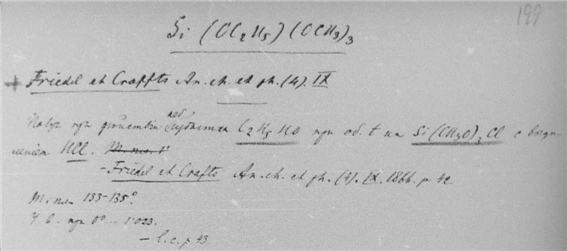 199
Si (OC₂H₅) (OCH₃)₃
+ Friedel et Craffts An. ch. et ph. (4). IX
при действии C₂H₅HO при об. t на Si(CH₃O)₃Cl с выде-
лением HCl.
- Friedel et Crafts An. ch. et ph. (4). IX. 1866. p. 42
133-135°
У. в. при 0° ... 1.023.
- l. c. p. 43